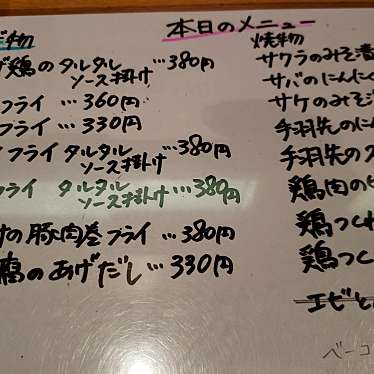 本日のメニュー
物
鶏のタルタル
ソース掛け…380円
フライ…360円
フライ…330円
フライタルタル
ソース掛け…380円
フライ タルタル
ソース掛け…380円
の豚肉巻フライ…380円
腐のあげだし…330円
焼物
サクラのみそ漬
サバのにんにく
サケのみそ漬
手羽先のに
手羽先の
鶏肉の
鶏つくね
鶏つく
エビと
ベーコ